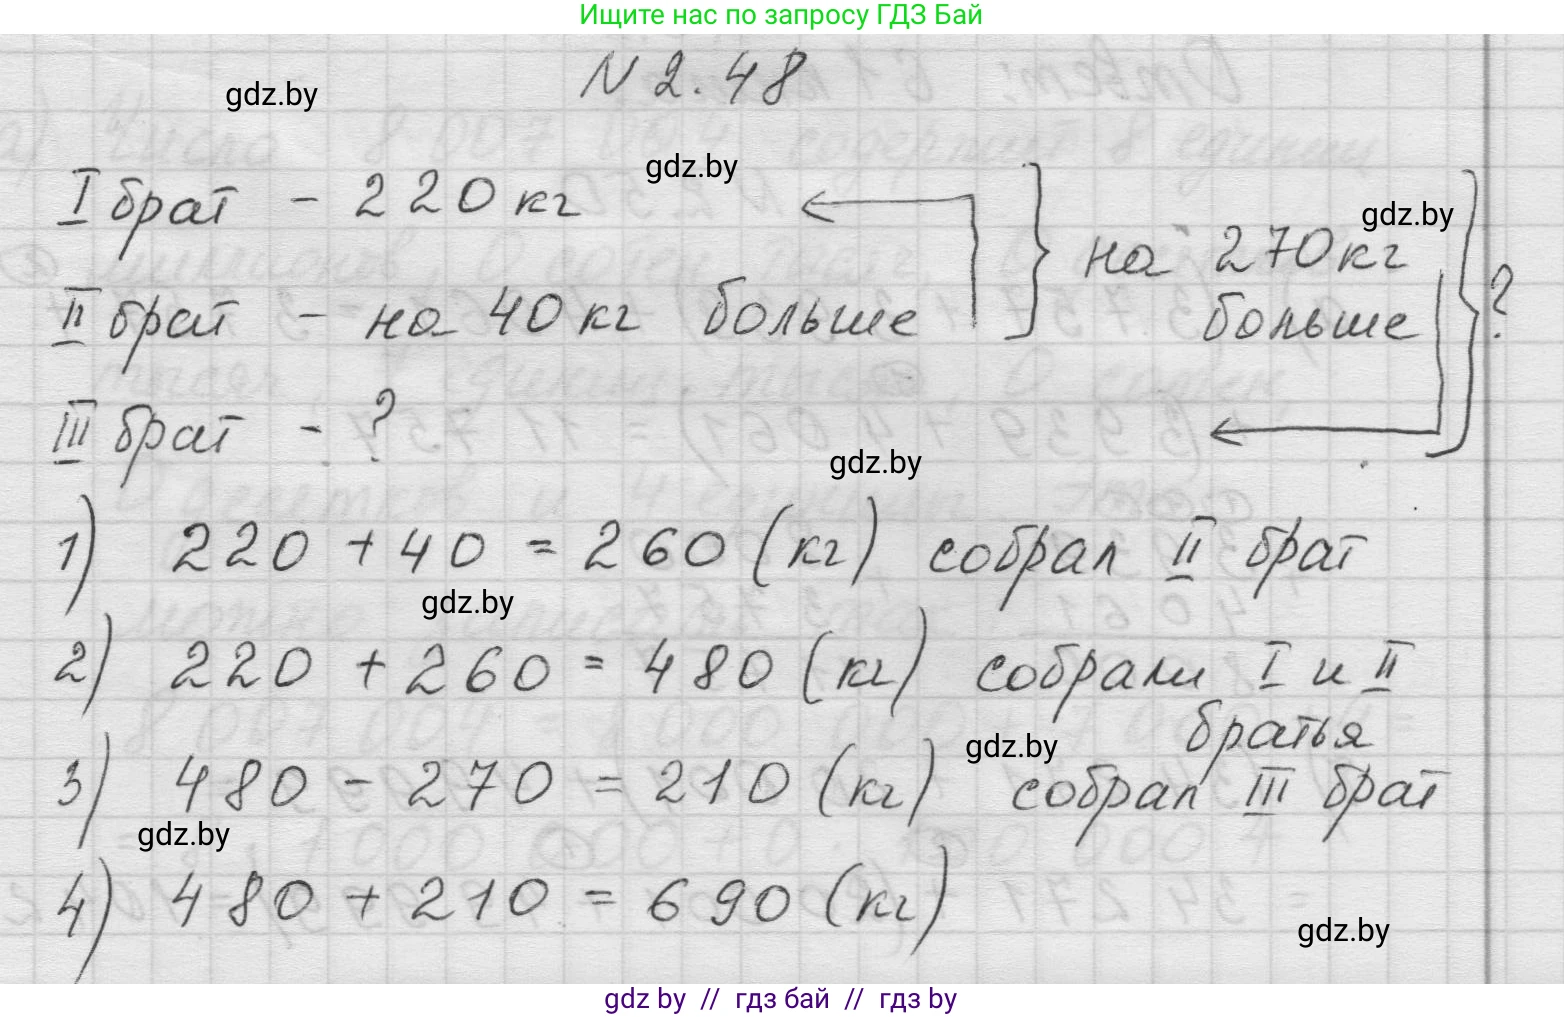 Ищите нас по запросу ГДЗ Бай
N 2.48
gdz.by
I брат - 220 кг
gdz.by
на 270 кг
gdz.by
II брат - на 40 кг больше
больше
?
III брат - ?
gdz.by
1) 220 + 40 = 260 (кг) собрал II брат
gdz.by
2) 220 + 260 = 480 (кг) собрали I и II
братья
gdz.by
3) 480 - 270 = 210 (кг) собрал III брат
gdz.by
4) 480 + 210 = 690 (кг)
gdz.by
gdz by // гдз бай // гдз by